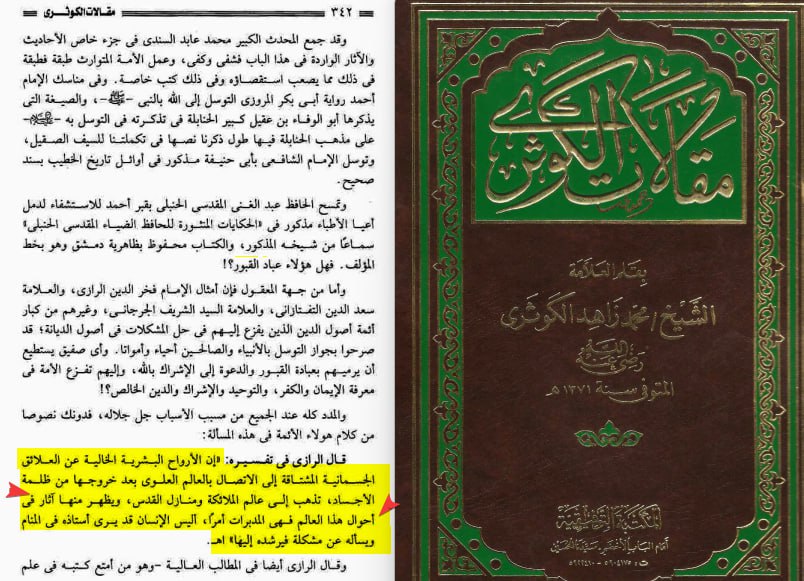 ٣٤٢ مقالات الكوثرى
وقد جمع المحدث الكبير محمد عابد السندى فى جزء خاص الأحاديث
والآثار الواردة فى هذا الباب فشفى وكفى، وعمل الأمة المتوارث طبقة فطبقة
فى ذلك مما يصعب استقصاؤه وفى ذلك كتب خاصة. وفى مناسك الإمام
أحمد رواية أبى بكر المروزى التوسل إلى الله بالنبى -ﷺ-، والصيغة التى
يذكرها أبو الوفاء بن عقيل كبير الحنابلة فى تذكرته فى التوسل به -ﷺ-
على مذهب الحنابلة فيها طول ذكرنا نصها فى تكملتنا للسيف الصقيل،
وتوسل الإمام الشافعى بأبى حنيفة مذكور فى أوائل تاريخ الخطيب بسند
صحيح.
وتمسح الحافظ عبد الغنى المقدسى الحنبلى بقبر أحمد للاستشفاء لدمل
أعيا الأطباء مذكور فى «الحكايات المنثورة للحافظ الضياء المقدسى الحنبلى»
سماعًا من شيخه المذكور، والكتاب محفوظ بظاهرية دمشق وهو بخط
المؤلف. فهل هؤلاء عباد القبور؟!
وأما من جهة المعقول فإن أمثال الإمام فخر الدين الرازى، والعلامة
سعد الدين التفتازانى، والعلامة السيد الشريف الجرجانى، وغيرهم من كبار
أئمة أصول الدين الذين يفزع إليهم فى حل المشكلات فى أصول الديانة؛ قد
صرحوا بجواز التوسل بالأنبياء والصالحين أحياء وأمواتا. وأى صفيق يستطيع
أن يرميهم بعبادة القبور والدعوة إلى الإشراك بالله، وإليهم تفزع الأمة فى
معرفة الإيمان والكفر، والتوحيد والإشراك والدين الخالص؟!
والمدد كله عند الجميع من مسبب الأسباب جل جلاله، فدونك نصوصا
من كلام هولاء الأئمة فى هذه المسألة:
قال الرازى فى تفسيره: «إن الأرواح البشرية الخالية عن العلائق
الجسمانية المشتاقة إلى الاتصال بالعالم العلوى بعد خروجها من ظلمة
الأجساد، تذهب إلى عالم الملائكة ومنازل القدس، ويظهر منها آثار فى
أحوال هذا العالم فهى المدبرات أمرًا، أليس الإنسان قد يرى أستاذه فى المنام
ويسأله عن مشكلة فيرشده إليها» اهـ.
وقال الرازى أيضا فى المطالب العالية -وهو من أمتع كتبه فى علم
مقالات الكوثرى
بقلم العلامة
الشيخ / محمد زاهد الكوثرى
رضى الله عنه
المتوفى سنة ١٣٧١ هـ
المكتبة التوفيقية